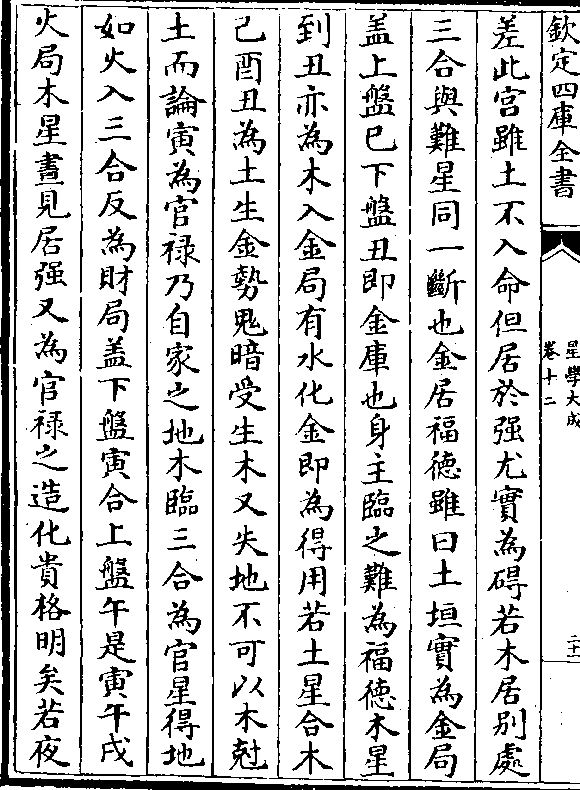 欽定四庫全書
星學大成
卷十二
二十一
差此宫雖土不入命但居於强尤實為碍若木居別處
三合與難星同一斷也金居福德雖曰土垣實為金局
盖上盤巳下盤丑即金庫也身主臨之難為福徳木星
到丑亦為木入金局有水化金即為得用若土星合木
已酉丑為土生金勢鬼暗受生木又失地不可以木尅
土而論寅為官禄乃自家之地木臨三合為官星得地
如火入三合反為財局盖下盤寅合上盤午是寅午戌
火局木星晝見居强又為官禄之造化貴格明矣若夜